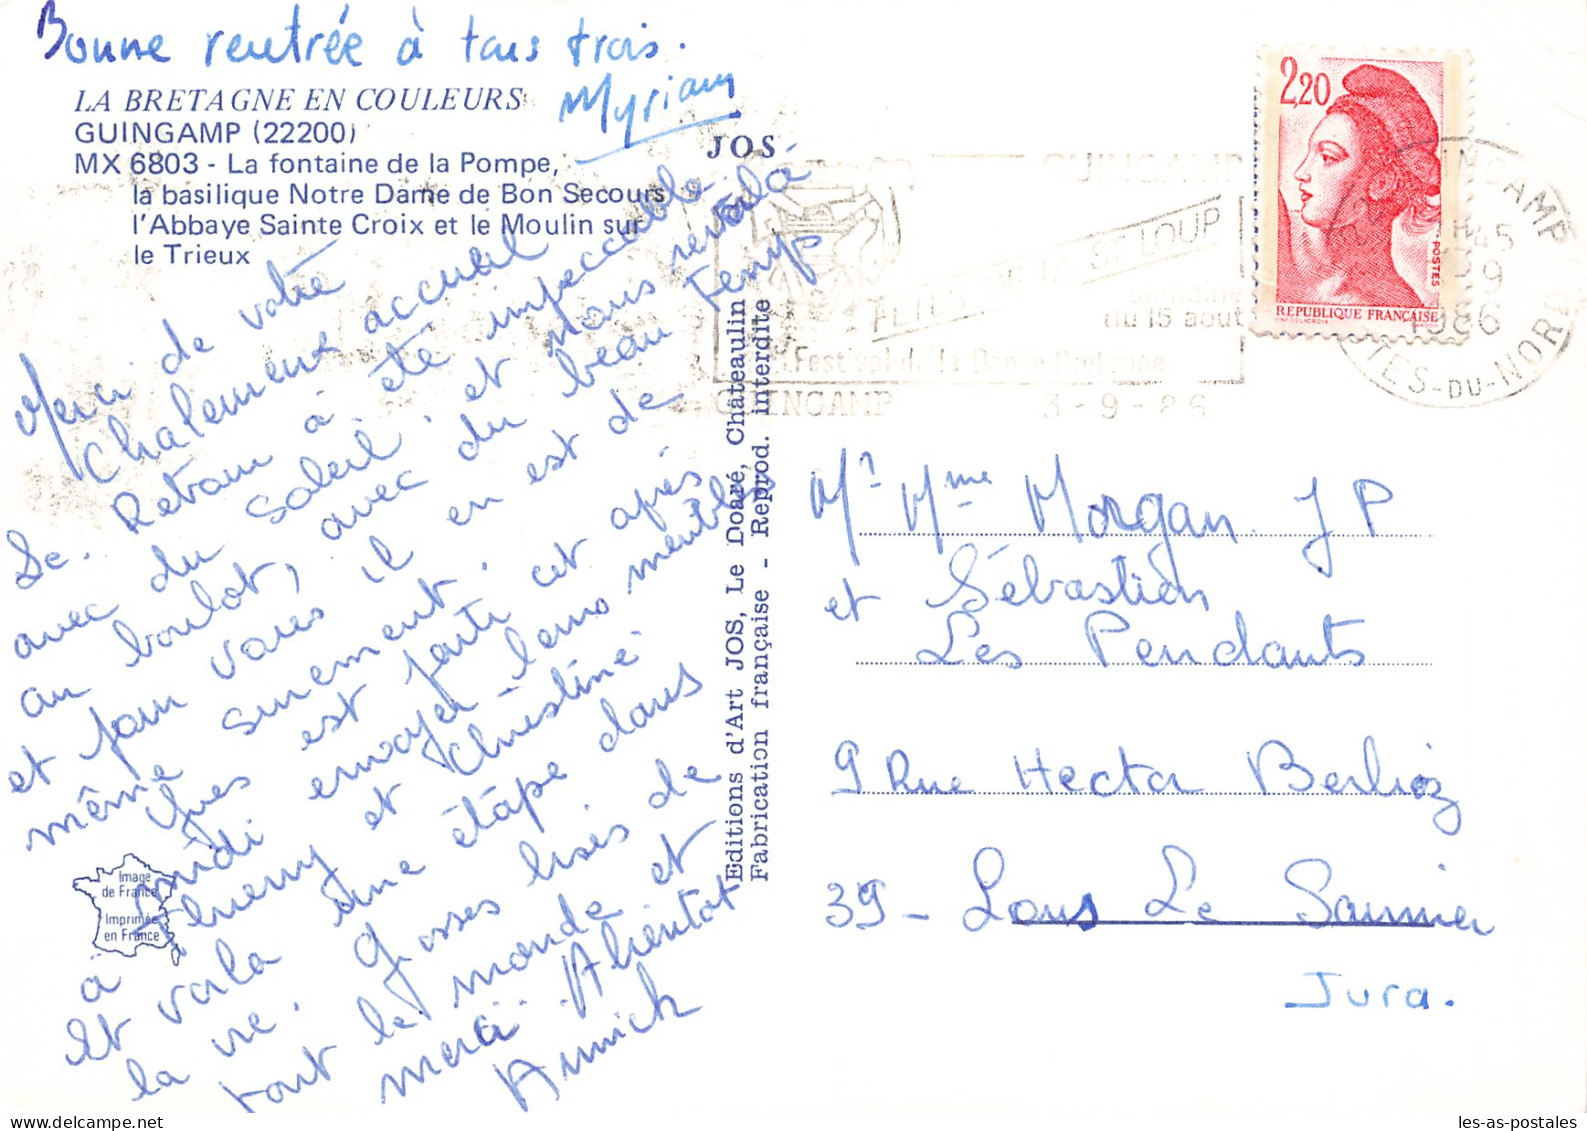 Bonne rentrée à tous trois.
Myriam
LA BRETAGNE EN COULEURS
GUINGAMP (22200)
MX 6803 - La fontaine de la Pompe,
la basilique Notre Dame de Bon Secours
l'Abbaye Sainte Croix et le Moulin sur
le Trieux
JOS
Merci de votre
chaleureux accueil
Retour à été impeccable
avec du soleil, et nous revoilà
au boulot, avec du beau temps
et pour vous il en est de
même surement. cet après
midi Yves est parti
envoyer leurs meubles
à Thierry et Christine
Et voila une étape dans
la vie. Grosses bises de
tout le monde et
merci. A bientot
Annick
Image
de France
Imprimée
en France
Editions d'Art JOS, Le Doaré, Châteaulin
Fabrication française - Reprod. interdite
2,20
POSTES
REPUBLIQUE FRANÇAISE
GUINGAMP
FETES DE LA St LOUP
semaine
du 15 août
Festival de la Danse Bretonne
GUINGAMP
3-9-86
GUINGAMP
45
9
1986
COTES-DU-NORD
Mr Mme Morgan J P
et Sébastien
Les Pendants
9 Rue Hector Berlioz
39 - Lons Le Saunier
Jura.
les-as-postales